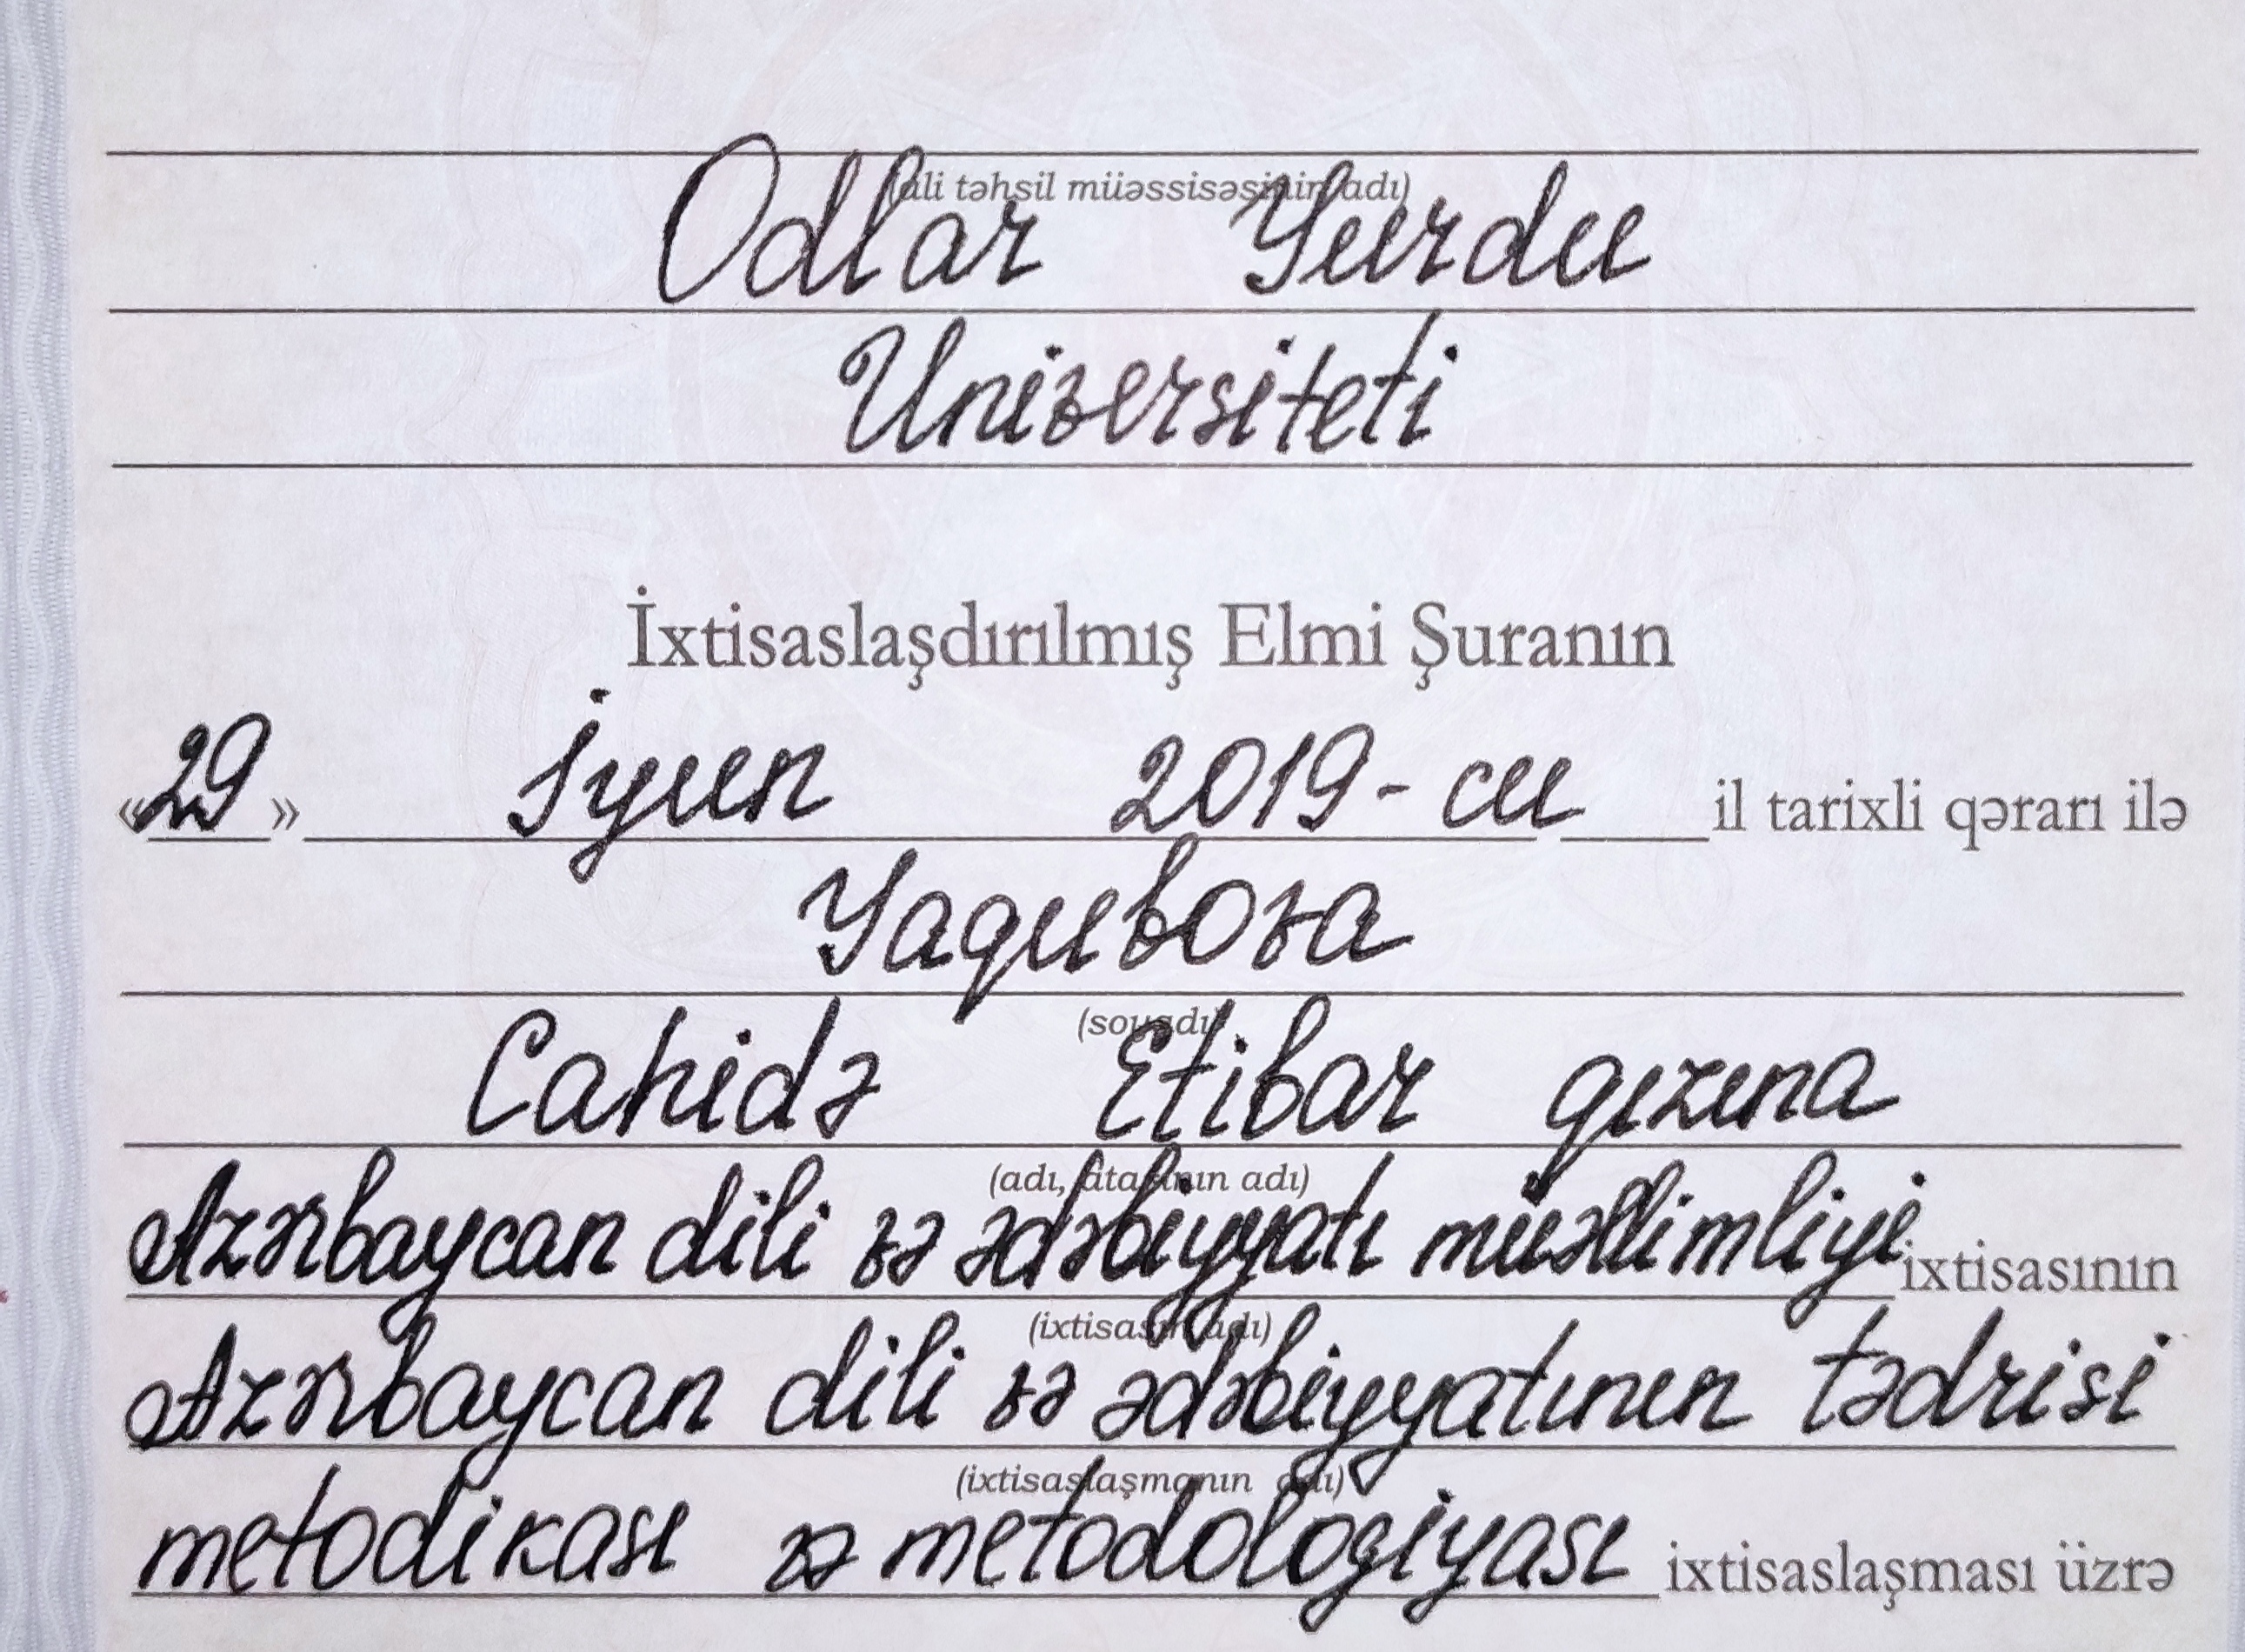 (ali təhsil müəssisəsinin adı)
Odlar Yurdu
Universiteti
İxtisaslaşdırılmış Elmi Şuranın
«29» İyun 2019-cu il tarixli qərarı ilə
Yaqubova
(soyadı)
Cahidə Etibar qızına
(adı, atasının adı)
Azərbaycan dili və ədəbiyyatı müəllimliyi ixtisasının
(ixtisasın adı)
Azərbaycan dili və ədəbiyyatının tədrisi
(ixtisaslaşmanın adı)
metodikası və metodologiyası ixtisaslaşması üzrə